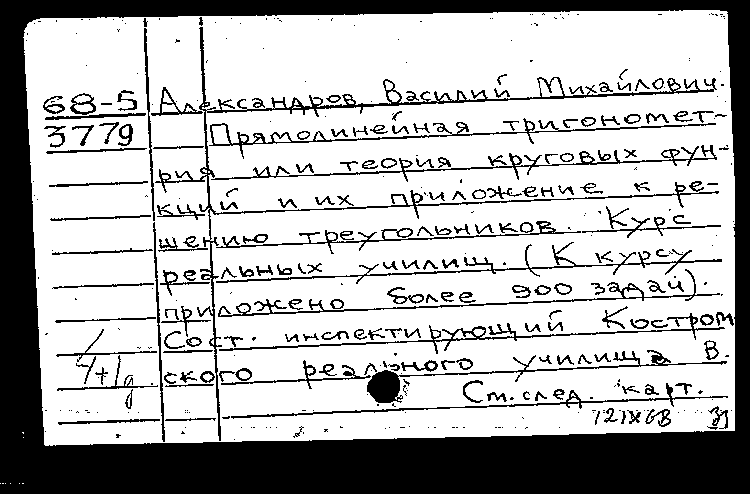 68-5 Александров, Василий Михайлович.
3779 Прямолинейная тригономет-
рия или теория круговых фун-
кций и их приложение к ре-
шению треугольников. Курс
реальных училищ. (К курсу
приложено более 900 задач).
Сост. инспектирующий Костром
ского реального училища В.
См. след. карт.